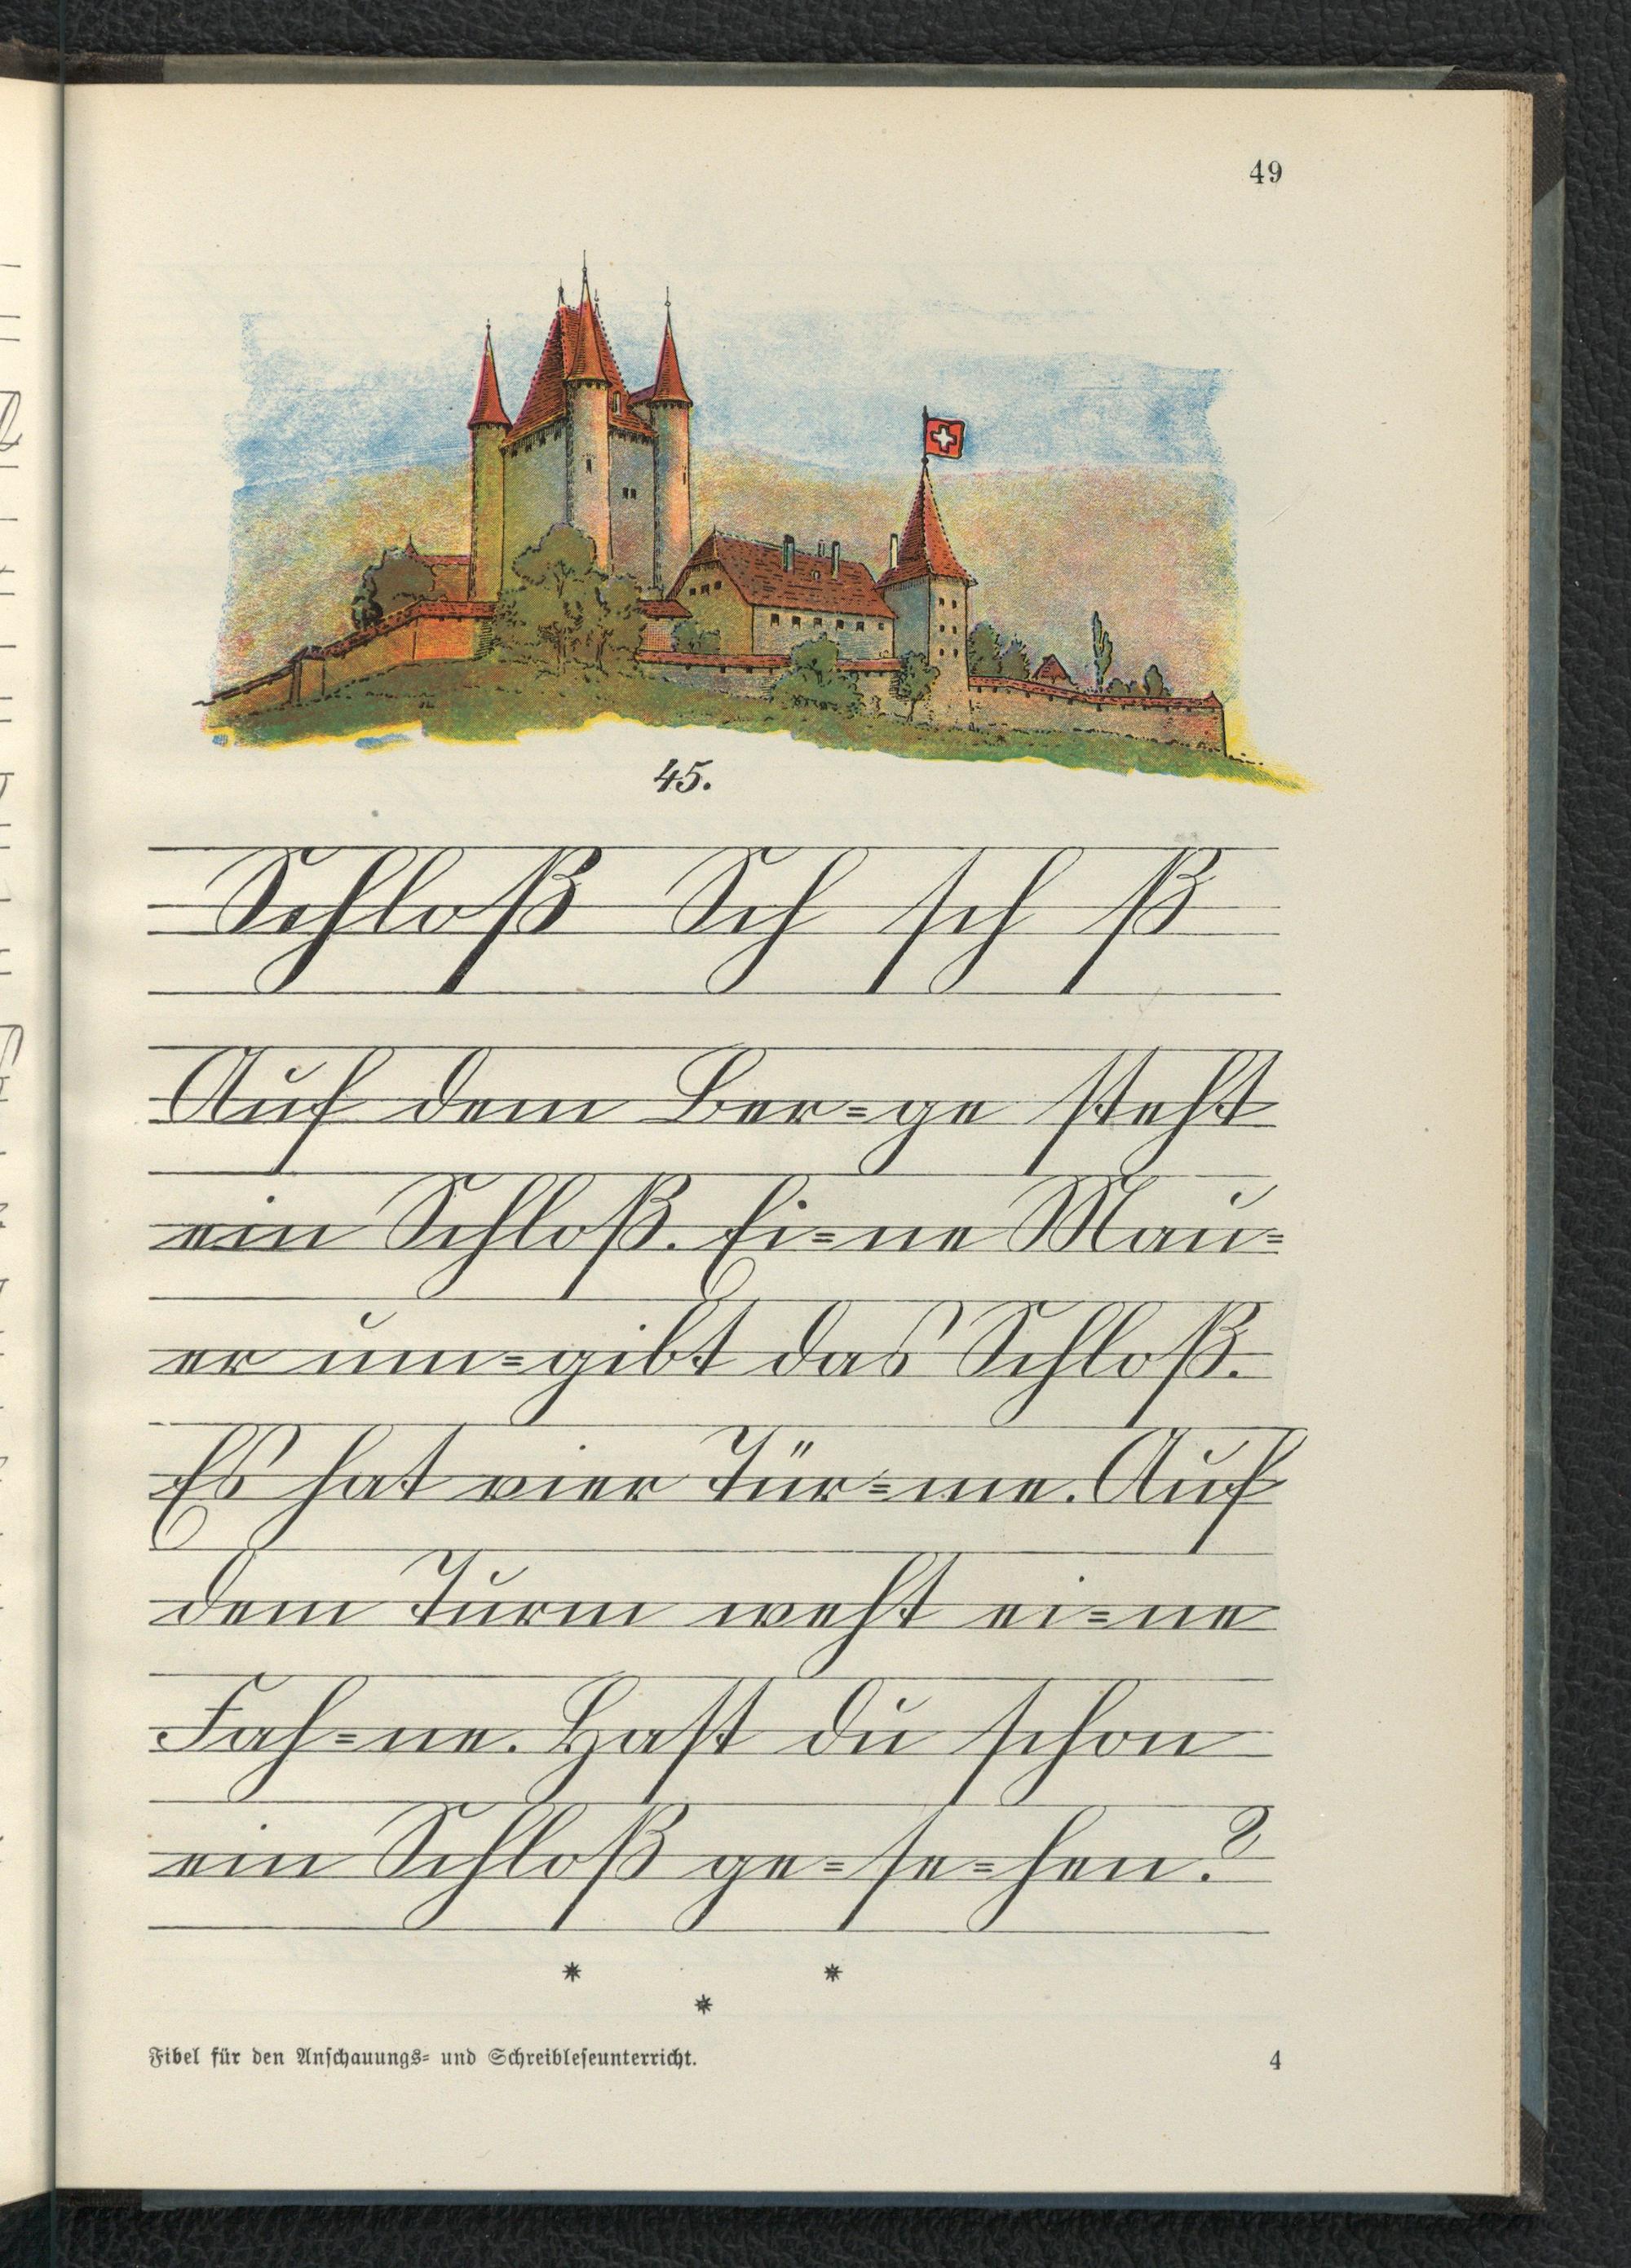 49
45.
Schloß Sch sch ß
Auf dem Ber=ge steht
ein Schloß. Ei=ne Mau=
er um=gibt das Schloß.
Es hat vier Tür=me. Auf
dem Turm weht ei=ne
Fah=ne. Hast du schon
ein Schloß ge=se=hen?
* *
*
Fibel für den Anschauungs= und Schreibleseunterricht. 4